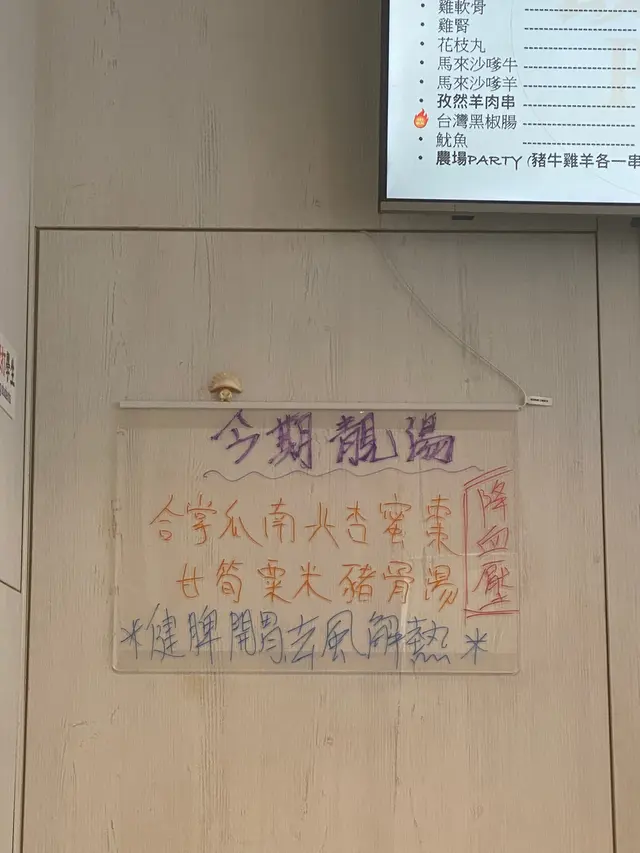 雞軟骨
雞腎
花枝丸
馬來沙嗲牛
馬來沙嗲羊
孜然羊肉串
台灣黑椒腸
魷魚
農場PARTY (豬牛雞羊各一串
今期靚湯
合掌瓜南北杏蜜棗
甘筍粟米豬骨湯
降血壓
*健脾開胃去風解熱*